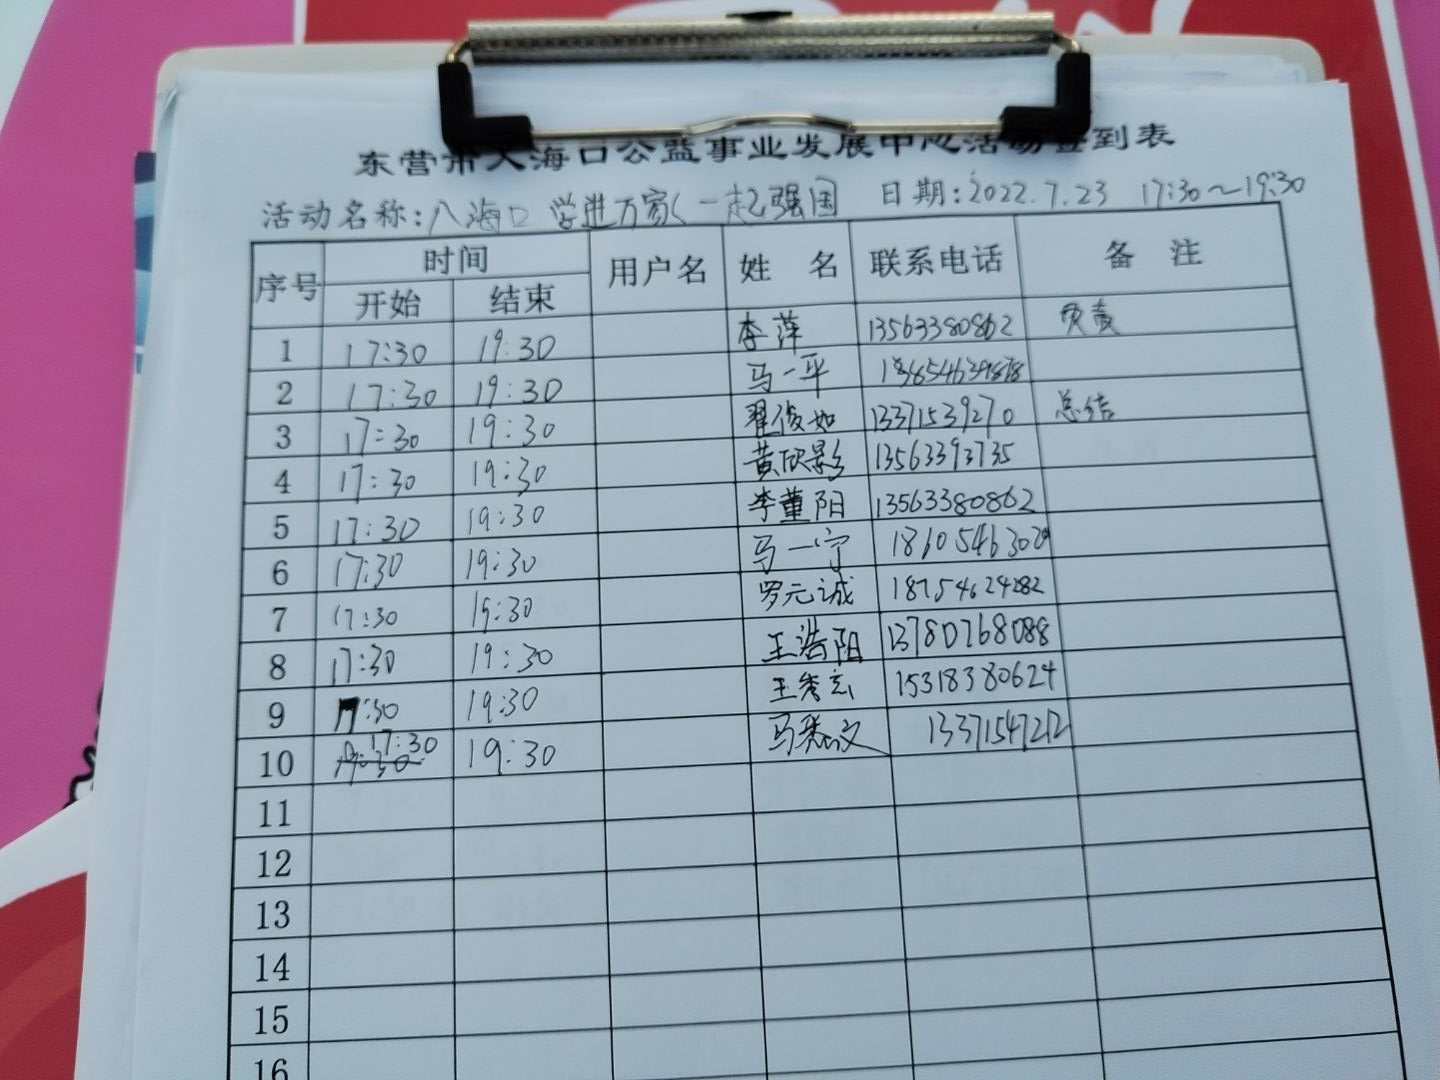 东营市大海口公益事业发展中心活动签到表
活动名称:八海口 学进万家(一起强国 日期:2022.7.23 17:30~19:30
序号 时间 用户名 姓 名 联系电话 备 注
开始 结束
1 17:30 19:30 李萍 13563380862 负责
2 17:30 19:30 马一平
3 17:30 19:30 翟俊如 13371539270 总结
4 17:30 19:30 黄欣影 13563393735
5 17:30 19:30 李董阳 13563380862
6 17:30 19:30 马一宁
7 17:30 19:30 罗元诚 18754624282
8 17:30 19:30 王浩阳 13780768088
9 17:30 19:30 王秀云 15318380624
10 17:30 19:30
11
12
13
14
15
16